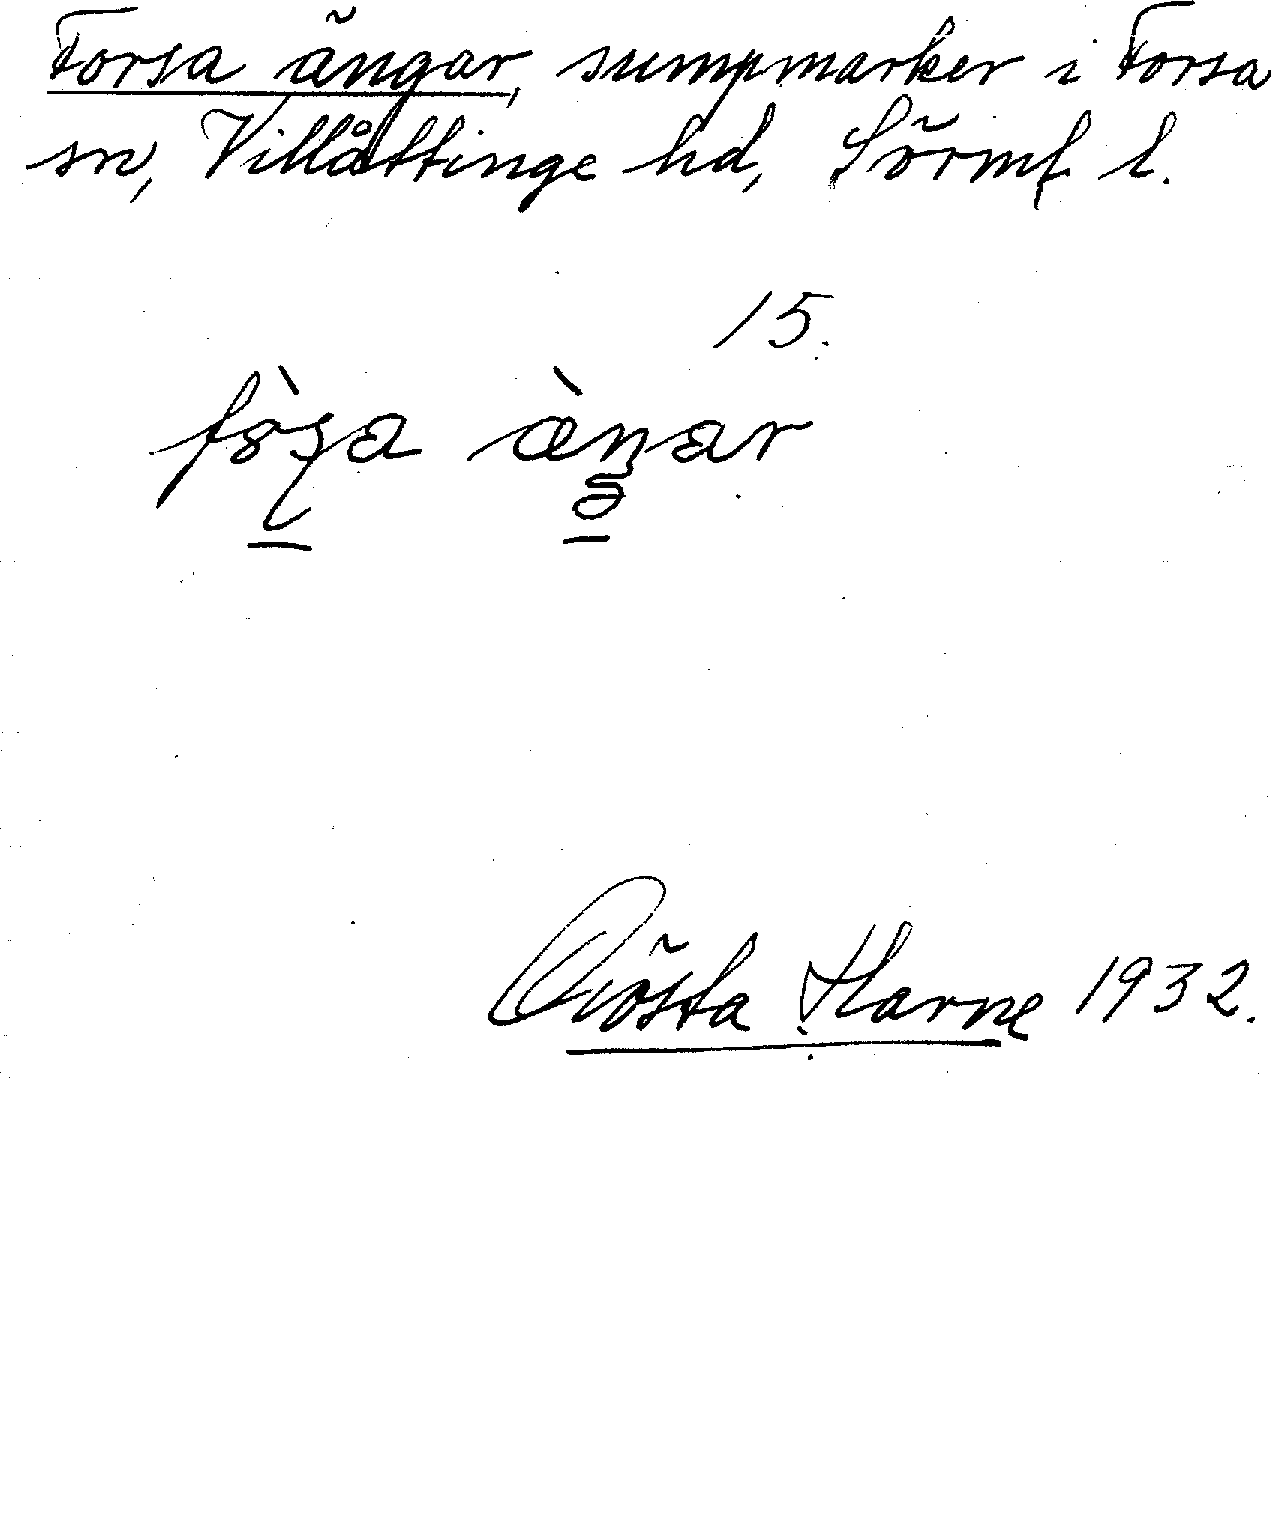 Forsa ängar, sumpmarker i Forsa
sn, Villåttinge hd, Sörml l.
15.
Gösta Harne 1932.